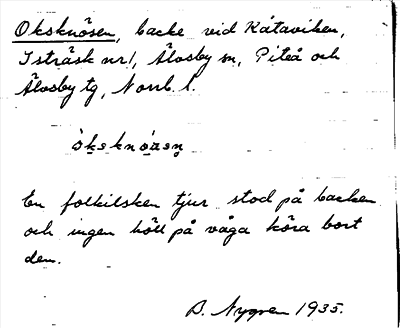 Oksknösen, backe vid Kåtaviken,
Isträsk nr 1, Älvsby sn, Piteå och
Älvsby tg, Norrb. l.
ò̀ksknö̀sen
En folkilsken tjur stod på backen
och ingen höll på våga köra bort
den.
B. Nygren 1935.